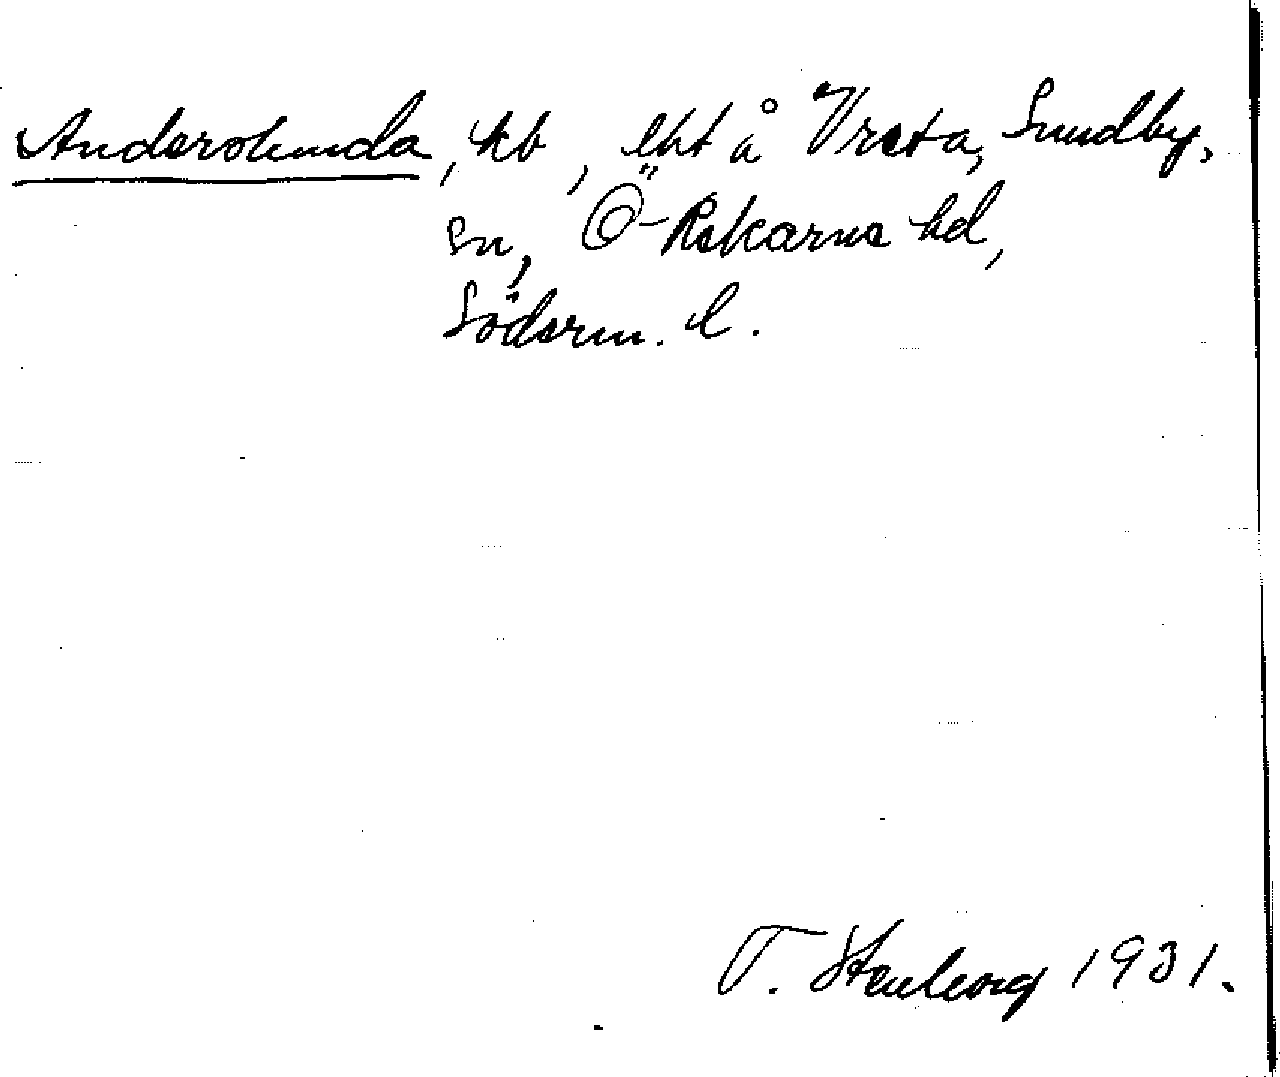 Anderslunda, hb, ekt å Vreta, Sundby,
sn, Ö-Rekarne hd,
Söderm. l.
T. Stenborg 1931.